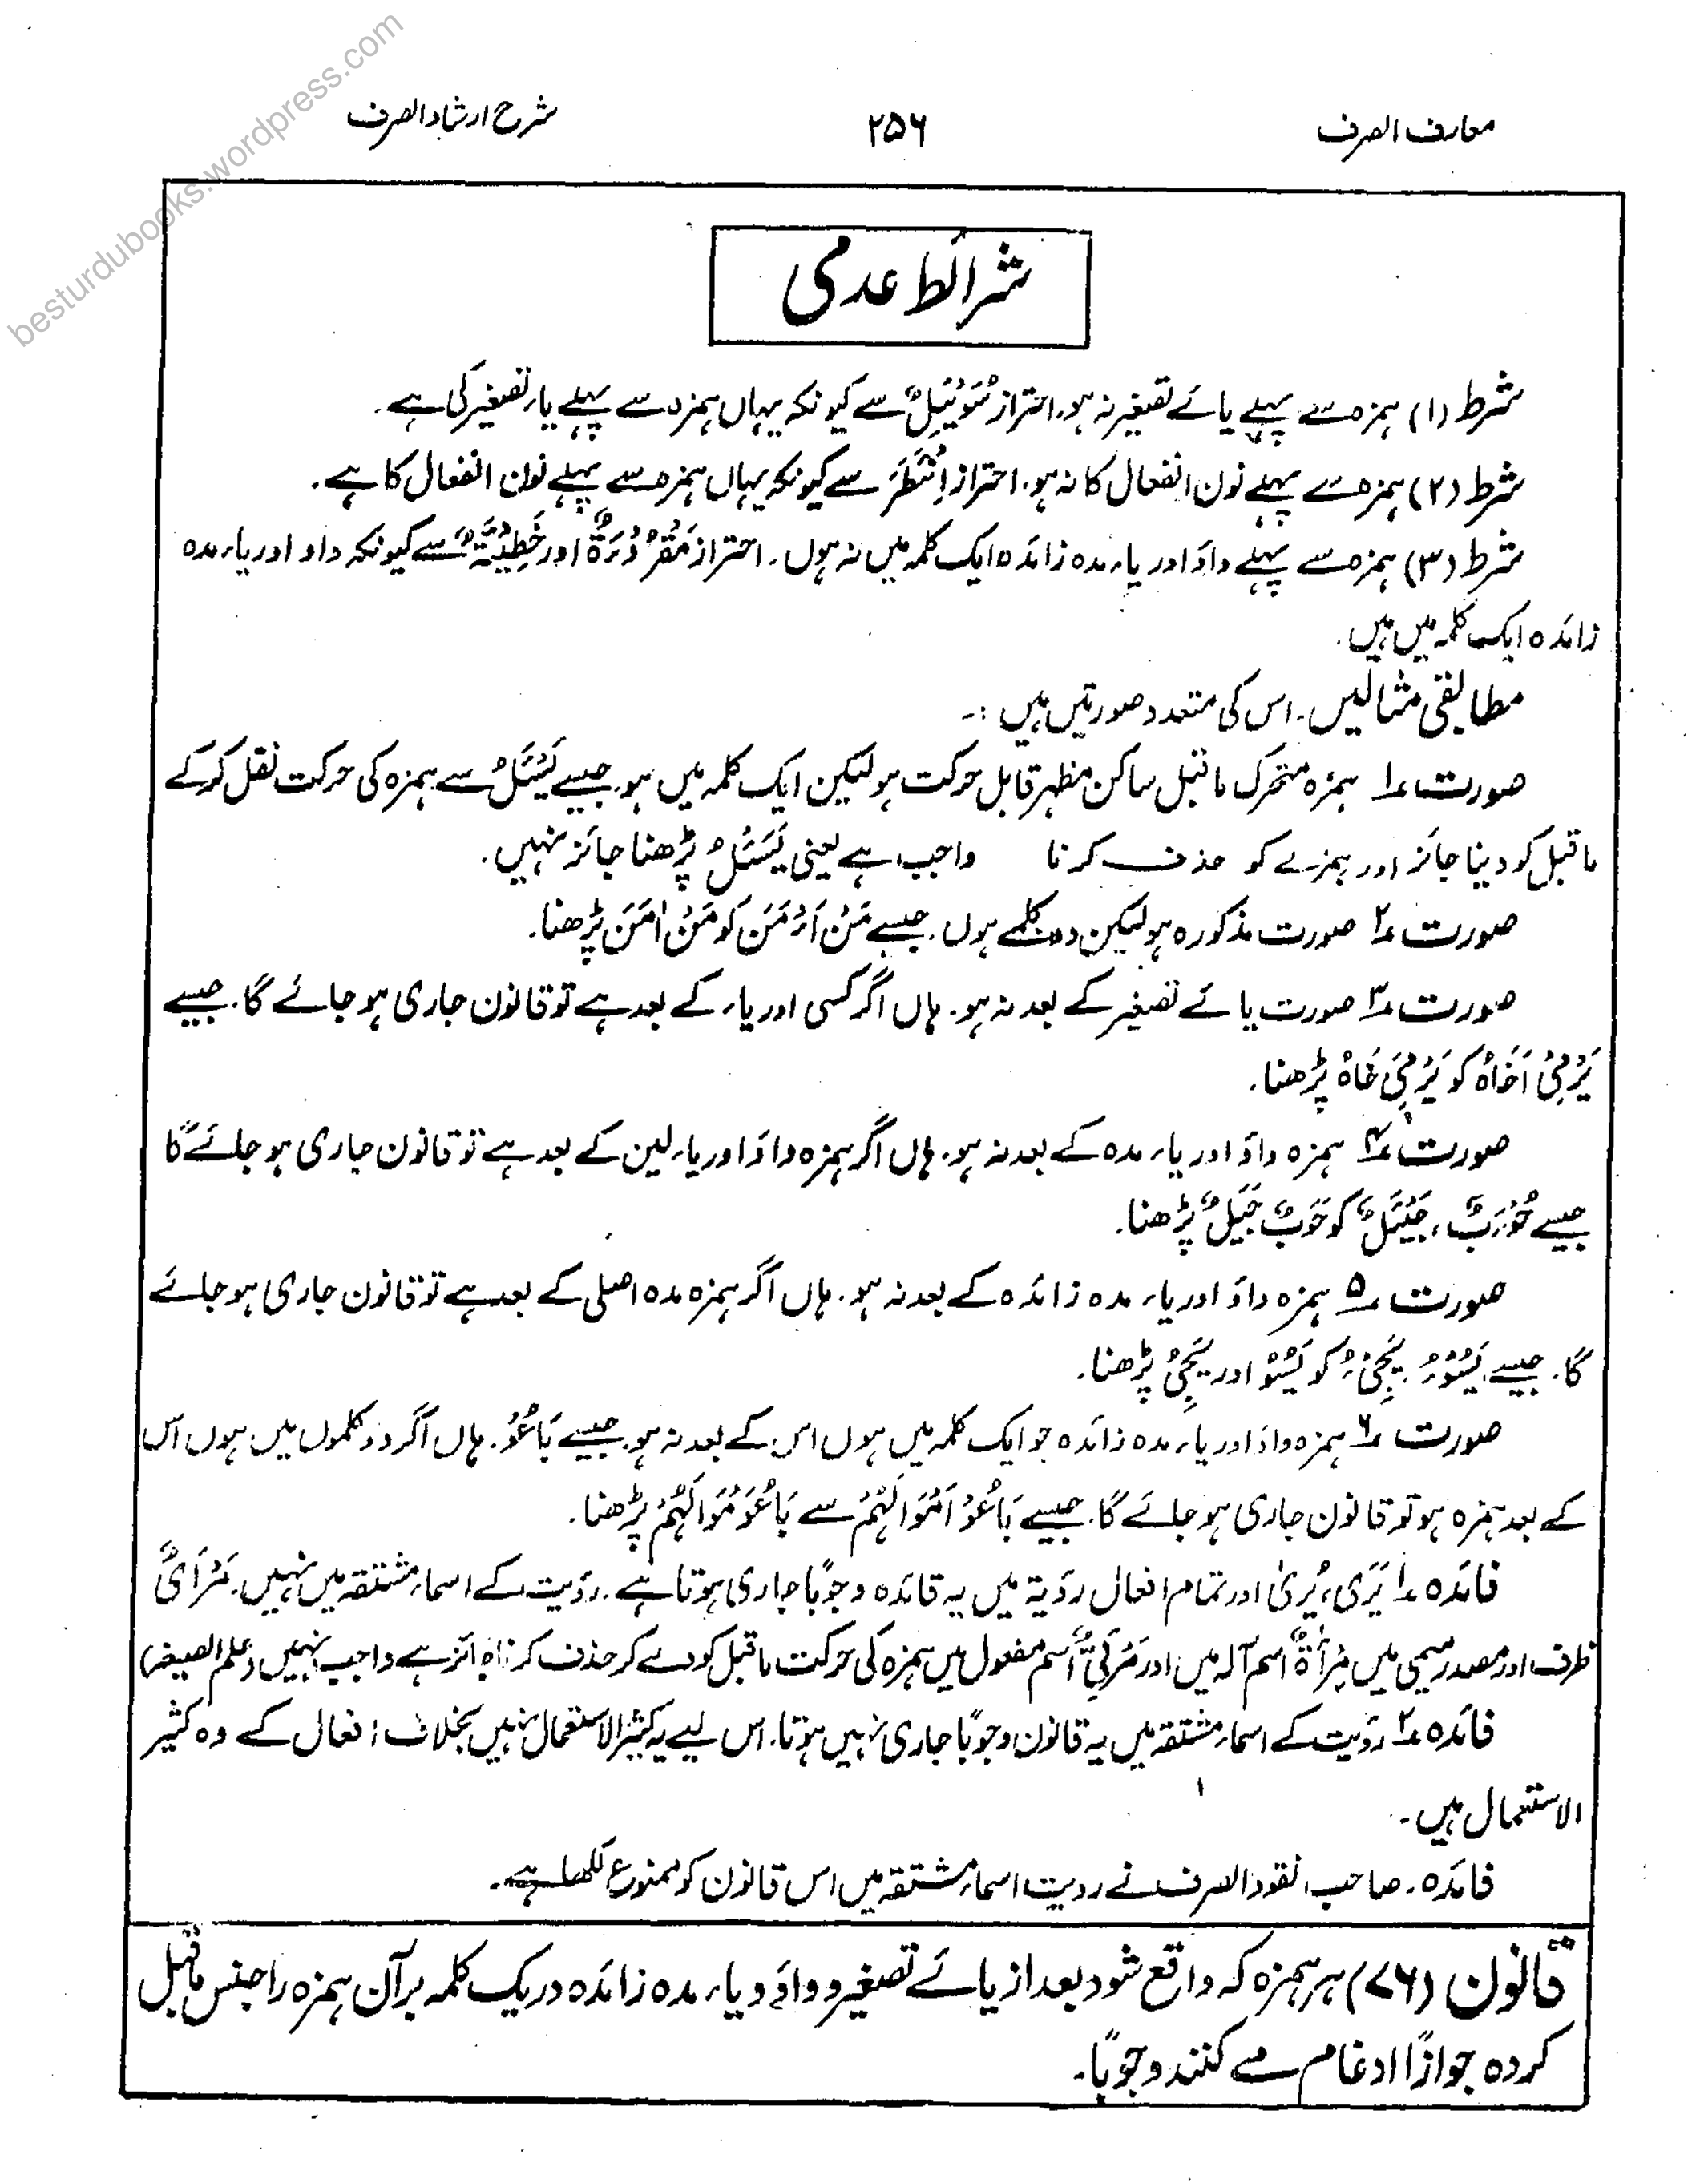 besturdubooks.wordpress.com
معارف الصرف
۲۵۶
شرح ارشاد الصرف
شرائط عدمی
شرط (۱) ہمزہ سے پہلے یائے تصغیر نہ ہو، احتراز سُوَیْئِلٌ سے کیونکہ یہاں ہمزہ سے پہلے یاء تصغیر کی ہے۔
شرط (۲) ہمزہ سے پہلے نون انفعال کا نہ ہو، احتراز اِنْئَطَرَ سے کیونکہ یہاں ہمزہ سے پہلے نون انفعال کا ہے۔
شرط (۳) ہمزہ سے پہلے واؤ اور یاء مدہ زائدہ ایک کلمہ میں نہ ہوں۔ احتراز مَقْرُوْءَةٌ اور خَطِیْئَةٌ سے کیونکہ واو اور یاء مدہ
زائدہ ایک کلمہ میں ہیں۔
مطابقی مثالیں۔ اس کی متعدد صورتیں ہیں :۔
صورت ۱ ہمزہ متحرک ماقبل ساکن مظہر قابل حرکت ہو لیکن ایک کلمہ میں ہو۔ جیسے یَسْئَلُ سے ہمزہ کی حرکت نقل کرکے
ماقبل کو دینا جائز اور ہمزے کو حذف کرنا واجب ہے یعنی یَسَئَلُ پڑھنا جائز نہیں۔
صورت ۲ صورت مذکورہ ہو لیکن دو کلمے ہوں۔ جیسے مَنْ اَءْمَنَ کو مَنُ اٰمَنَ پڑھنا۔
صورت ۳ صورت یائے تصغیر کے بعد نہ ہو۔ ہاں اگر کسی اور یاء کے بعد ہے تو قانون جاری ہو جائے گا۔ جیسے
یَرْمِیْ اَخَاہُ کو یَرْمِیَ خَاہُ پڑھنا۔
صورت ۴ ہمزہ واؤ اور یاء مدہ کے بعد نہ ہو۔ ہاں اگر ہمزہ واؤ اور یاء لین کے بعد ہے تو قانون جاری ہو جائے گا
جیسے حَوْءَبٌ، جَیْئَلٌ کو حَوَبٌ جَیَلٌ پڑھنا۔
صورت ۵ ہمزہ واؤ اور یاء مدہ زائدہ کے بعد نہ ہو۔ ہاں اگر ہمزہ مدہ اصلی کے بعد ہے تو قانون جاری ہو جائے
گا۔ جیسے یَسُوْءُ یَجِیْءُ کو یَسُوُ اور یَجِیُ پڑھنا۔
صورت ۶ ہمزہ واؤ اور یاء مدہ زائدہ جو ایک کلمہ میں ہوں اس کے بعد نہ ہو۔ جیسے بَاعُوْ۔ ہاں اگر دو کلموں میں ہوں اس
کے بعد ہمزہ ہو تو قانون جاری ہو جائے گا۔ جیسے بَاعُوْ اَمْوَالَہُمْ سے بَاعُوَ مْوَالَہُمْ پڑھنا۔
فائدہ ۱ یَرٰی، یُرٰی اور تمام افعال رؤیۃ میں یہ قاعدہ وجوباً جاری ہوتا ہے۔ رؤیت کے اسماء مشتقہ میں نہیں۔ مَرْاَیً
ظرف اور مصدر میمی میں مِرْاٰةٌ اسم آلہ میں اور مَرْئِیٌّ اسم مفعول میں ہمزہ کی حرکت ماقبل کو دے کر حذف کرنا جائز ہے واجب نہیں (علم الصیغہ)
فائدہ ۲ رؤیت کے اسماء مشتقہ میں یہ قانون وجوباً جاری نہیں ہوتا۔ اس لیے یہ کثیر الاستعمال نہیں بخلاف افعال کے وہ کثیر
الاستعمال ہیں۔
فائدہ۔ صاحب نقود الصرف نے رویت اسماء مشتقہ میں اس قانون کو ممنوع لکھا ہے۔
قانون (۷۶) ہر ہمزہ کہ واقع شود بعد از یائے تصغیر و واؤ و یاء مدہ زائدہ در یک کلمہ بر آن ہمزہ را جنس ماقبل
کردہ جوازاً ادغام مے کنند وجوباً۔